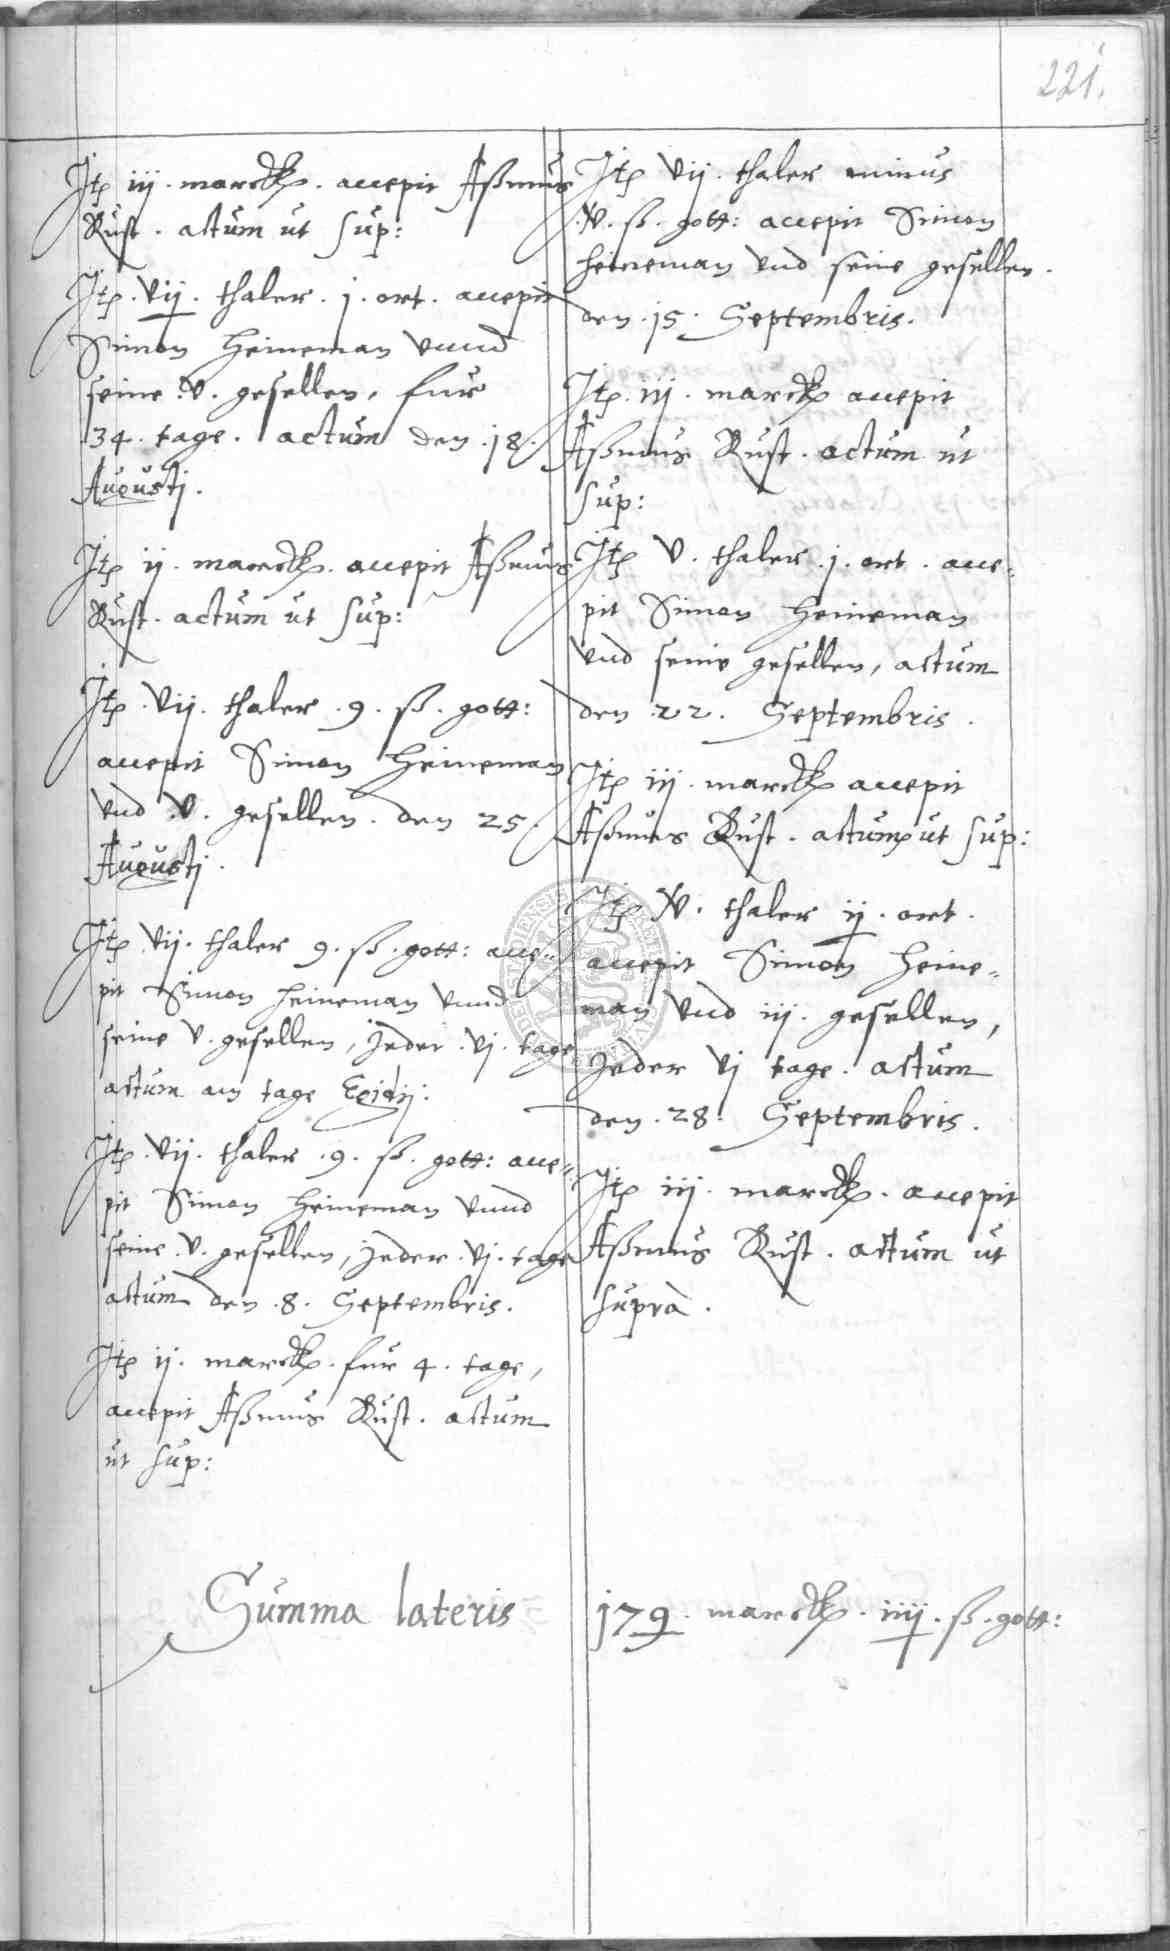 221.
Jtꝫ iij. marck. accepit Aßmus
Rust. actum ut sup:
Jtꝫ. vij. thaler. j. ort. accepit
Simon Heineman vnnd
seine .v. gesellen, fur
34. tage. actum den .18.
Augustj.
Jtꝫ ij. marck. accepit Aßmus
Rust. actum ut sup:
Jtꝫ .vij. thaler .9. ß. gott:
accepit Simon Heineman
vnd .v. gesellen. den 25.
Augustj.
Jtꝫ vij. thaler 9. ß. gott: acce=
pit Simon Heineman vnnd
seine v. gesellen, Jeder .vj. tage
actum am tage Egidij:
Jtꝫ .vij. thaler .9. ß. gott: acce=
pit Simon Heineman vnnd
seine .v. gesellen, Jeder .vj. tage
actum den .8. Septembris.
Jtꝫ ij. marck. fur 4. tage,
accepit Aßmus Rust. actum
ut sup:
Jtꝫ vij. thaler minus
ß. gott: accepit Simon
Heineman vnd seine gesellen.
den .15. Septembris.
Jtꝫ. iij. marck accepit
Aßmus Rust. actum ut
sup:
Jtꝫ v. thaler .j. ort. acce=
pit Simon Heineman
vnd seine gesellen, actum
den .22. Septembris.
Jtꝫ iij. marck accepit
Aßmus Rust. actum ut sup:
Jtꝫ thaler ij. ort.
accepit Simon Heine=
man vnd iij. gesellen,
Jeder vj tage. actum
den .28. Septembris.
Jtꝫ iij. marck. accepit
Aßmus Rust. actum ut
suprà.
Summa lateris 179. marck. iiij. ß. gott: